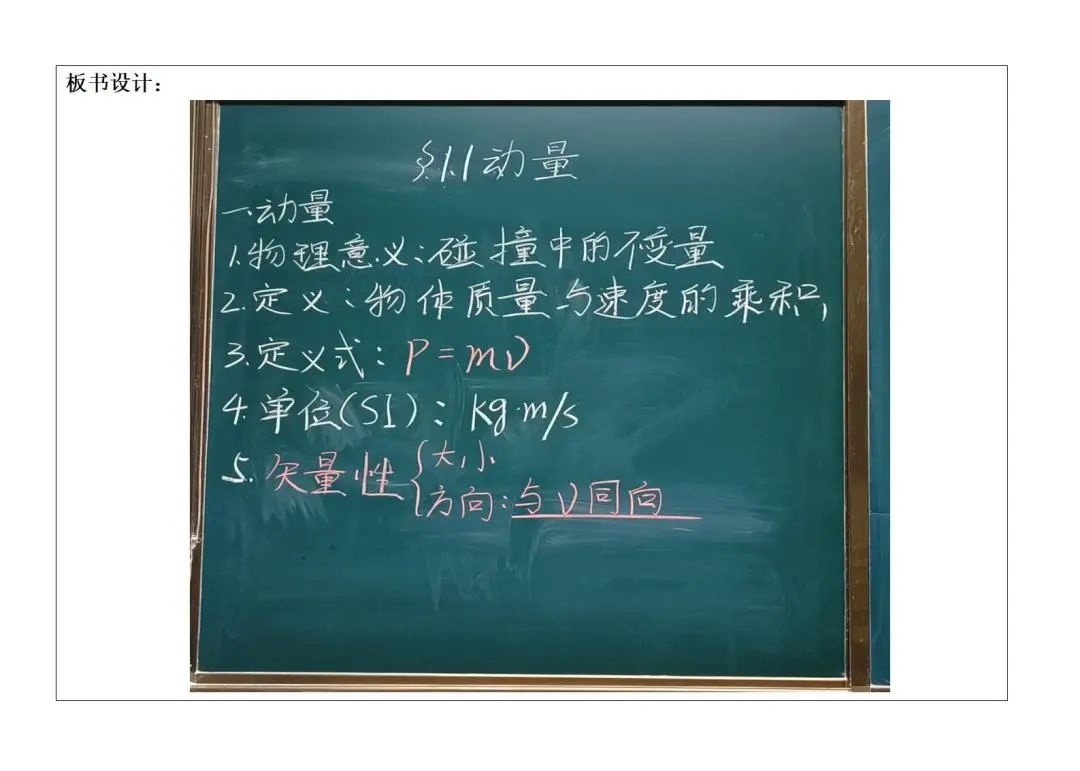 板书设计：
§1.1动量
一、动量
1.物理意义：碰撞中的不变量
2.定义：物体质量与速度的乘积，
3.定义式：P=mv
4.单位(SI)：kg·m/s
5.矢量性{大小
方向：与v同向